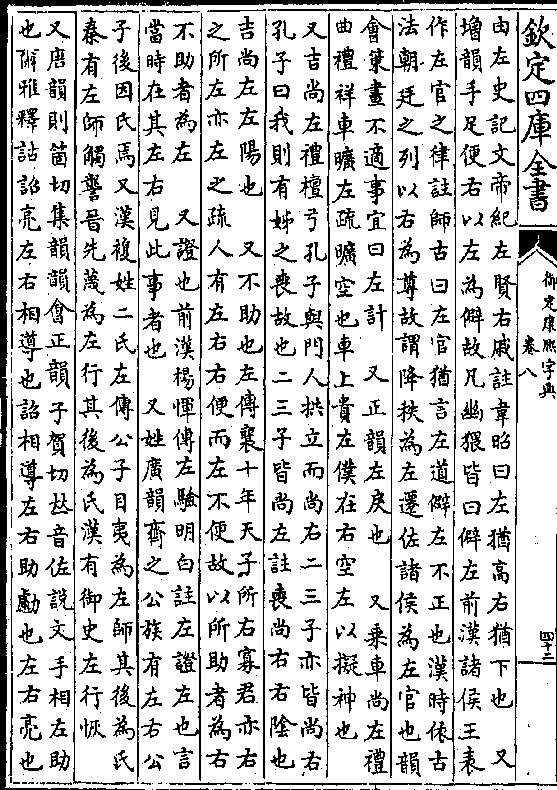 欽定四庫全書
御定康熙字典
卷八
四十二
由左史記文帝紀左賢右戚註韋昭曰左猶高右猶下也　又
增韻手足便右以左為僻故凡幽猥皆曰僻左前漢諸侯王表
作左官之律註師古曰左官猶言左道僻左不正也漢時依古
法朝廷之列以右為尊故謂降秩為左遷佐諸侯為左官也韻
會策畫不適事宜曰左計　又正韻左戾也　又乘車尚左禮
曲禮祥車曠左疏曠空也車上貴左僕在右空左以擬神也
又吉尚左禮檀弓孔子與門人拱立而尚右二三子亦皆尚右
孔子曰我則有姊之喪故也二三子皆尚左註喪尚右右陰也
吉尚左左陽也　又不助也左傳襄十年天子所右寡君亦右
之所左亦左之疏人有左右右便而左不便故以所助者為右
不助者為左　又證也前漢楊惲傳左驗明白註左證左也言
當時在其左右見此事者也　又姓廣韻齊之公族有左右公
子後因氏焉又漢複姓二氏左傳公子目夷為左師其後為氏
秦有左師觸讋晉先蔑為左行其後為氏漢有御史左行恢
又唐韻則箇切集韻韻會正韻子賀切𠀤音佐說文手相左助
也爾雅釋詁詔亮左右相導也詔相導左右助勴也左右亮也